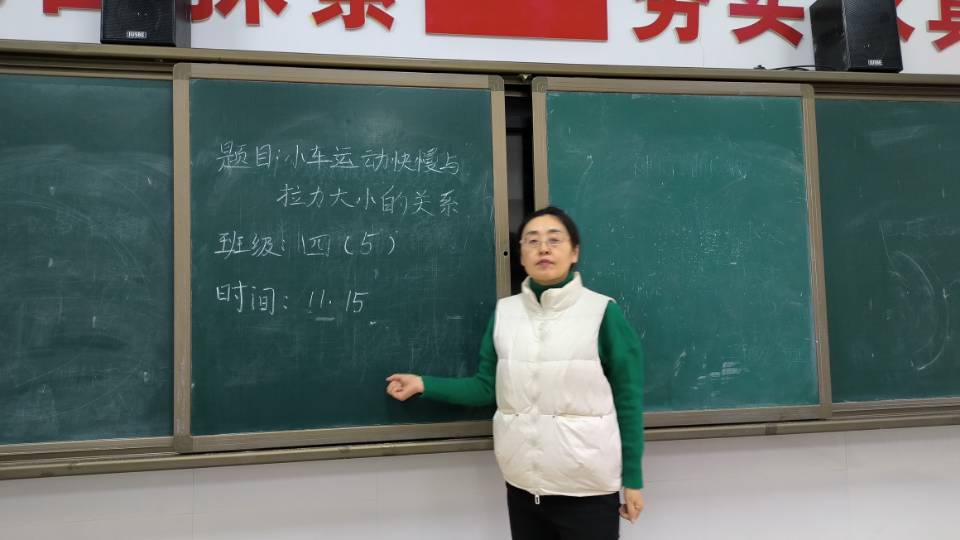 探索 务实 真
题目:小车运动快慢与
拉力大小的关系
班级:四(5)
时间:11.15